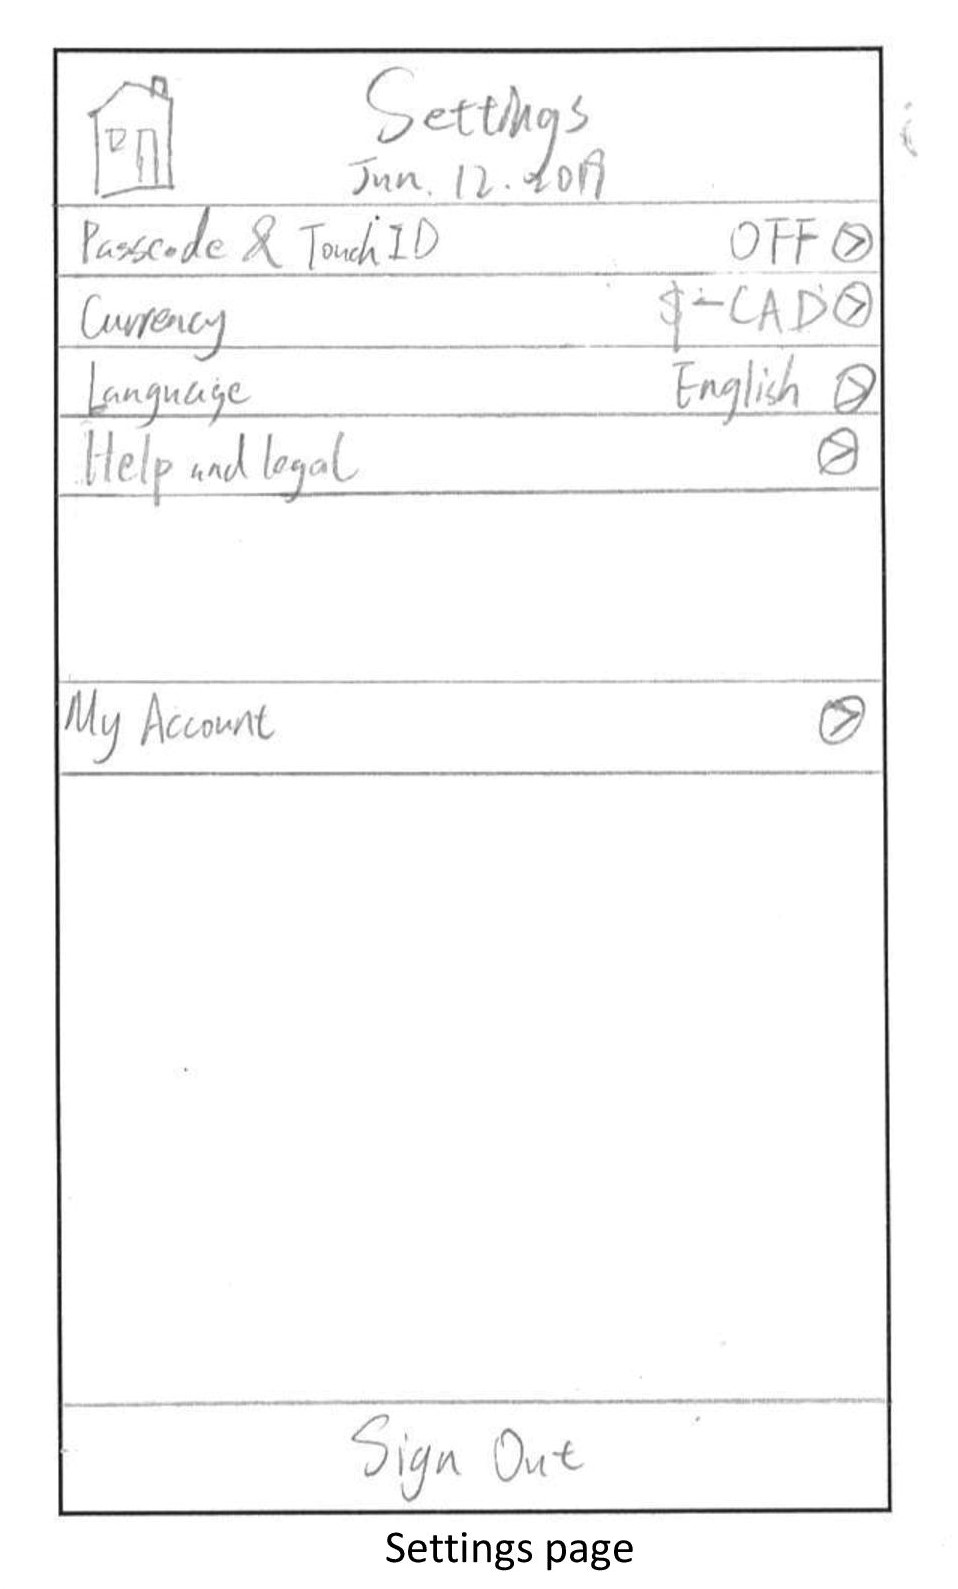 Settings
Jun. 12. 2019
Passcode & Touch ID OFF
Currency $-CAD
Language English
Help and legal
My Account
Sign Out
Settings page